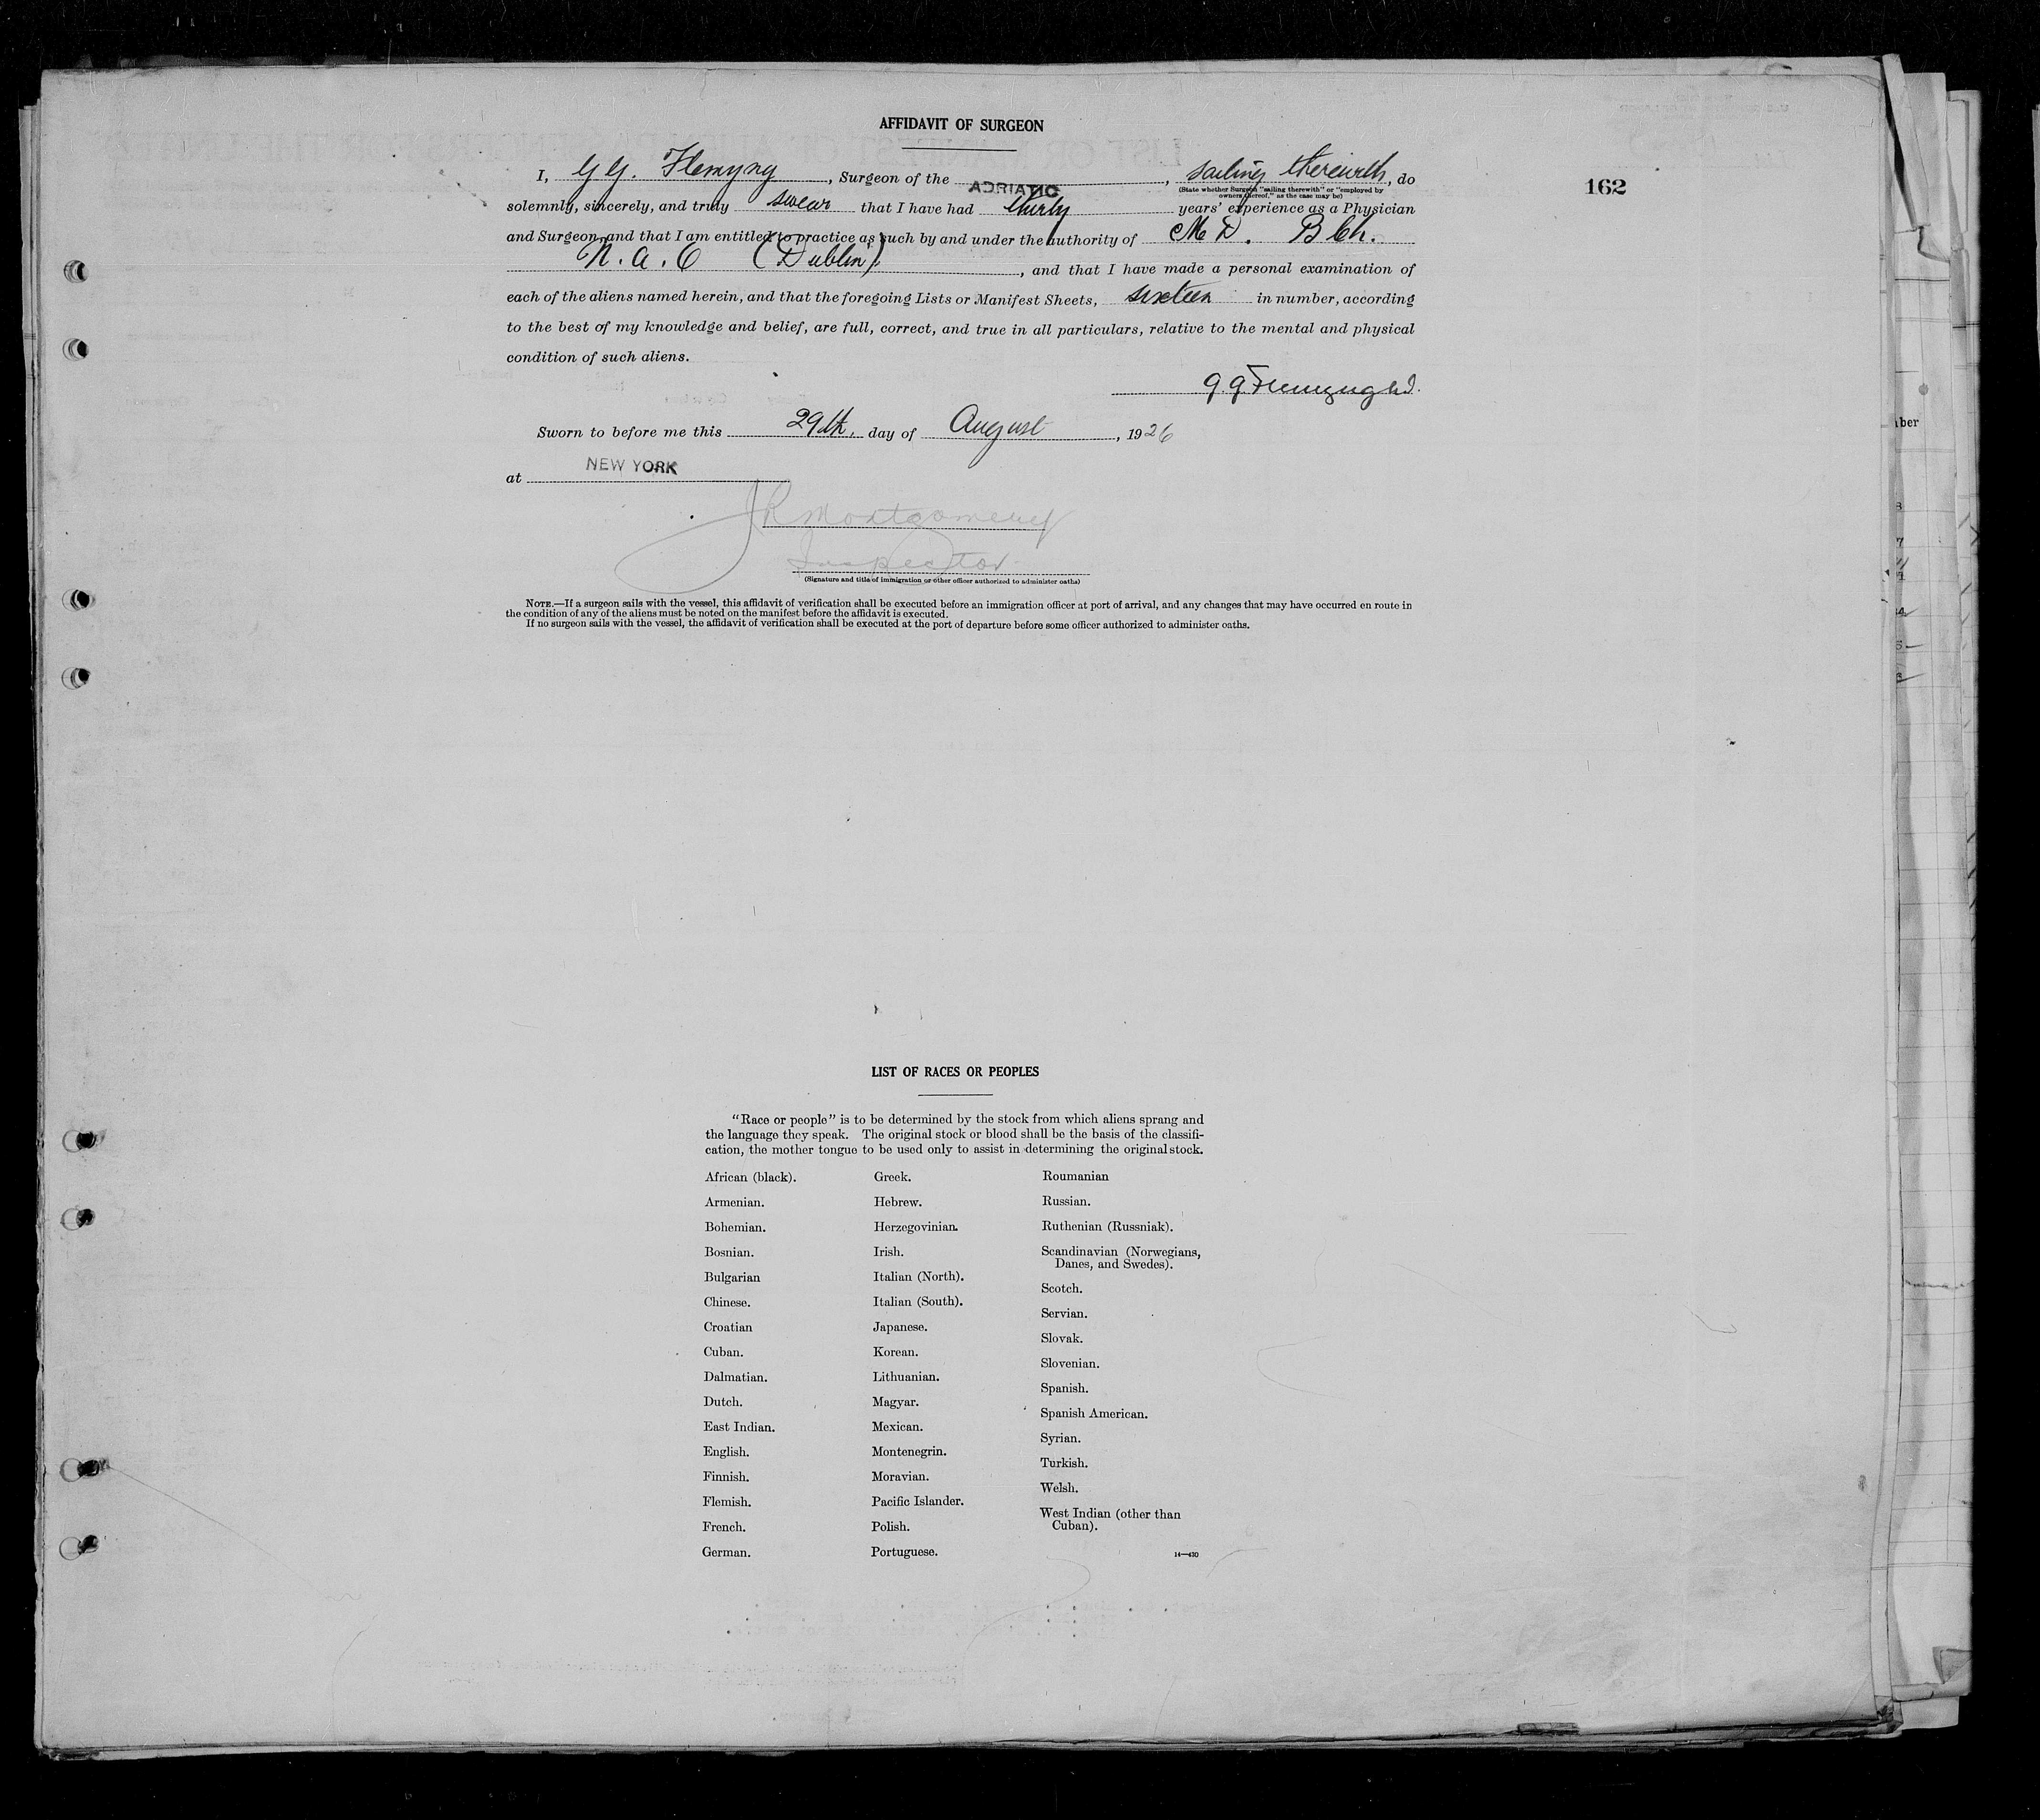 AFFIDAVIT OF SURGEON
162
I, G G. Flemyng, Surgeon of the ADRIATIC, sailing therewith, do
(State whether Surgeon "sailing therewith" or "employed by
owners thereof," as the case may be)
solemnly, sincerely, and truly swear that I have had thirty years' experience as a Physician
and Surgeon, and that I am entitled to practice as such by and under the authority of M D. B Ch.
(Dublin), and that I have made a personal examination of
each of the aliens named herein, and that the foregoing Lists or Manifest Sheets, sixteen in number, according
to the best of my knowledge and belief, are full, correct, and true in all particulars, relative to the mental and physical
condition of such aliens.
G. G Flemyng
Sworn to before me this 29th. day of August, 1926
at NEW YORK
JR Montgomery
Inspector
(Signature and title of immigration or other officer authorized to administer oaths)
NOTE.—If a surgeon sails with the vessel, this affidavit of verification shall be executed before an immigration officer at port of arrival, and any changes that may have occurred en route in
the condition of any of the aliens must be noted on the manifest before the affidavit is executed.
If no surgeon sails with the vessel, the affidavit of verification shall be executed at the port of departure before some officer authorized to administer oaths.
LIST OF RACES OR PEOPLES
"Race or people" is to be determined by the stock from which aliens sprang and
the language they speak. The original stock or blood shall be the basis of the classifi-
cation, the mother tongue to be used only to assist in determining the original stock.
African (black).
Armenian.
Bohemian.
Bosnian.
Bulgarian
Chinese.
Croatian
Cuban.
Dalmatian.
Dutch.
East Indian.
English.
Finnish.
Flemish.
French.
German.
Greek.
Hebrew.
Herzegovinian.
Irish.
Italian (North).
Italian (South).
Japanese.
Korean.
Lithuanian.
Magyar.
Mexican.
Montenegrin.
Moravian.
Pacific Islander.
Polish.
Portuguese.
Roumanian
Russian.
Ruthenian (Russniak).
Scandinavian (Norwegians,
Danes, and Swedes).
Scotch.
Servian.
Slovak.
Slovenian.
Spanish.
Spanish American.
Syrian.
Turkish.
Welsh.
West Indian (other than
Cuban).
14—430